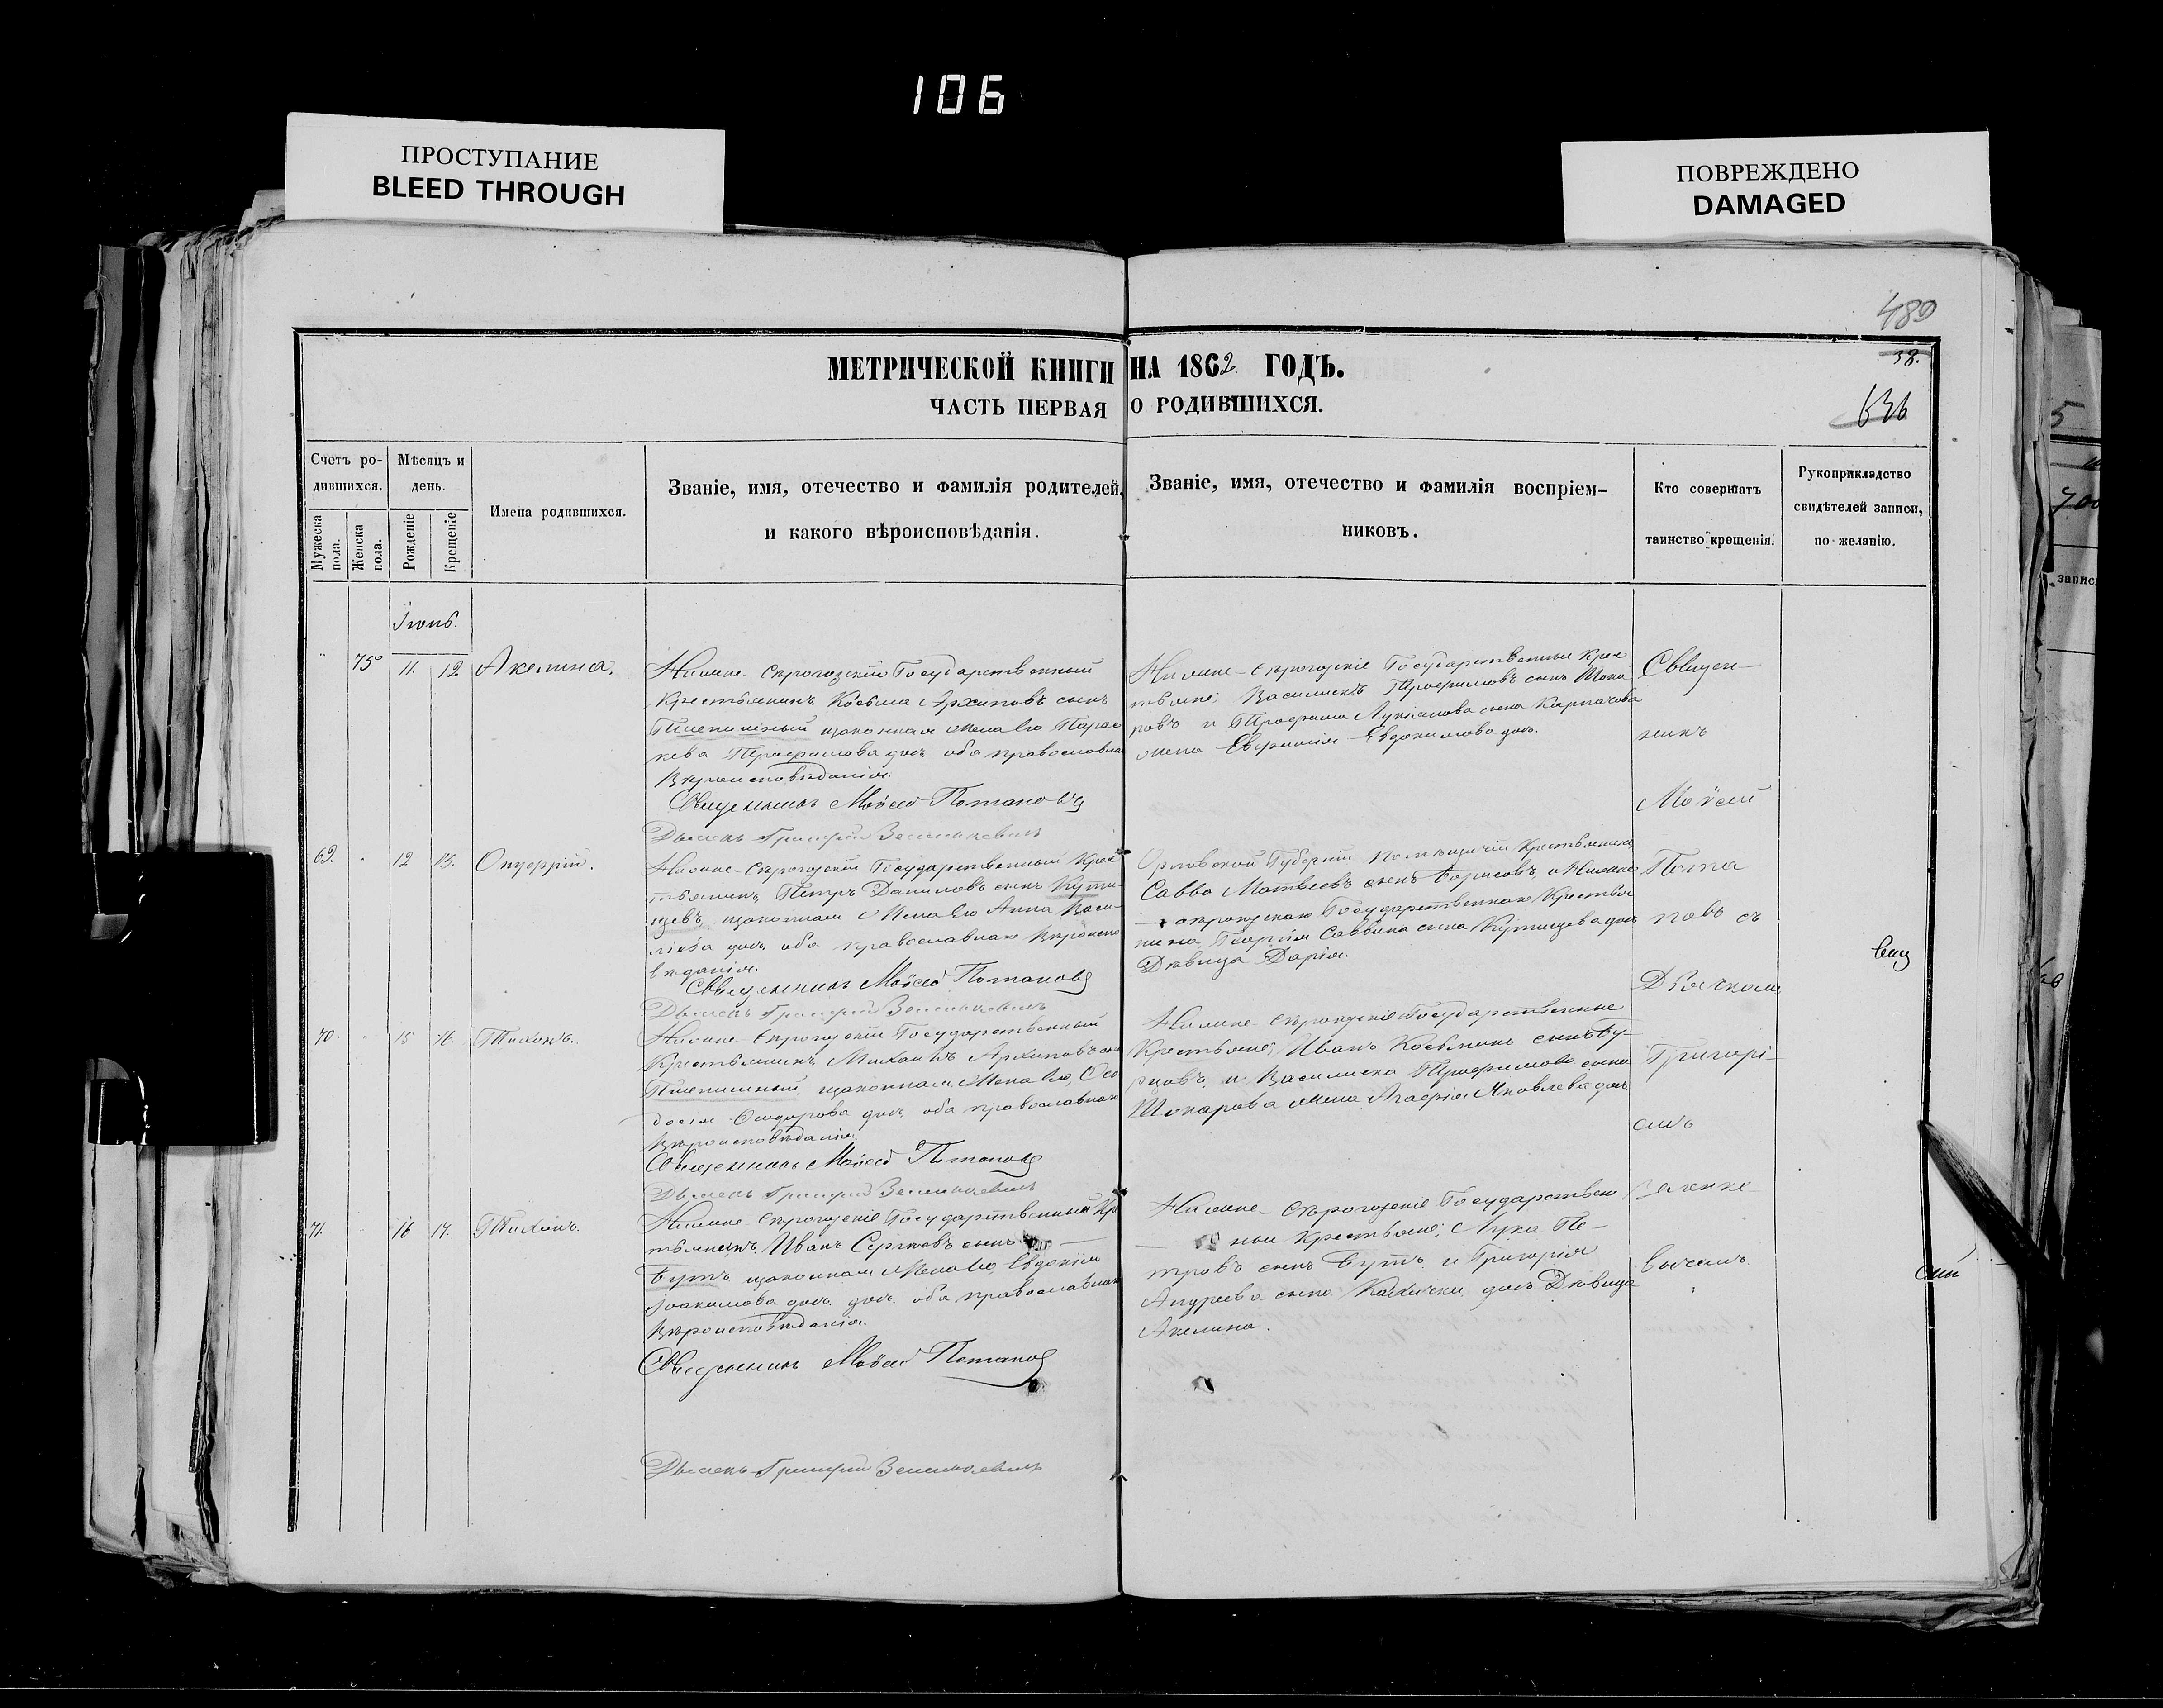 106
ПРОСТУПАНИЕ
BLEED THROUGH
ПОВРЕЖДЕНО
DAMAGED
489
38.
636
МЕТРИЧЕСКОЙ КНИГИ НА 1862 ГОДЪ.
ЧАСТЬ ПЕРВАЯ О РОДИВШИХСЯ.
Счетъ ро-
дившихся.
Мужеска
пола.
Женска
пола.
Мѣсяцъ и
день.
Рожденіе
Крещеніе
Имена родившихся.
Званіе, имя, отечество и фамилія родителей,
и какого вѣроисповѣданія.
Званіе, имя, отечество и фамилія воспріем-
никовъ.
Кто совершатъ
таинство крещенія.
Рукоприкладство
свидѣтелей записи,
по желанію.
Іюнь.
75
11.
12
Акелина.
Нижне-Сѣрогозскій Государственный
Крестьянинъ Косьма Архиповъ сынъ
Пшеничный законная жена его Парас
кева Трофимова дочь оба православнаго
Вѣроисповѣданія.
Священникъ Моѵсей Потаповъ
Дьячекъ Григорій Зеленкевичъ
Нижне-Сѣрогозскіе Государственные Крес
тьяне; Василискъ Трофимовъ сынъ Тока
ровъ и Трофима Лукіанова сына Карпачова
жена Евфимія Евдокимова дочь.
Священ-
никъ
Моѵсей
Пота
повъ съ
Дьячкомъ
Григорі-
емъ
Зеленке-
вичемъ.
69.
12
13.
Онуфрій.
Нижне-Сѣрогозскій Государственный Крес
тьянинъ Петръ Даниловъ сынъ Кути-
щевъ, законная жена его Анна Васи-
ліева дочь оба православнаго Вѣроиспо
вѣданія.
Священникъ Моѵсей Потаповъ
Дьячекъ Григорій Зеленкевичъ
Орловской Губерніи Помѣщичій Крестьянинъ
Савва Матвеевъ сынъ Борисовъ, и Нижне
-сѣрогозская Государственнаго Крестья
нина Георгія Саввина сына Кутищева дочь
Дѣвица Дарія.
70.
15
16.
Тихонъ.
Нижне-Сѣрогозскій Государственный
Крестьянинъ Михаилъ Архиповъ сынъ
Пшеничный, законная жена его, Ѳео
досія Ѳеодорова дочь, оба православнаго
Вѣроисповѣданія
Священникъ Моѵсей Потаповъ
Дьячекъ Григорій Зеленкевичъ
Нижне-Сѣрогозскіе Государственные
Крестьяне; Иванъ Косьминъ сынъ
и Василиска Трофимова сына
Токарова жена Агафія Яковлева дочь
71.
16
17.
Тихонъ.
Нижне-Сѣрогозскіе Государственный Кре
тьянинъ Иванъ Сергѣевъ сынъ
Бутъ законная жена его, Евдокія
Іоакимова дочь. дочь. оба православнаго
Вѣроисповѣданія.
Священникъ Моѵсей Потаповъ
Дьячекъ Григорій Зеленкевичъ
Нижне-Сѣрогозскіе Государствен
ныи Крестьяне; Лука Пе-
тровъ сынъ Бутъ и Григорія
Андреева сына дочь Дѣвица
Акелина.